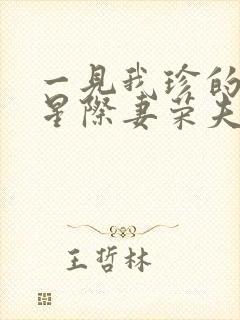 一見我珍的
星際妻荣夫
王哲林